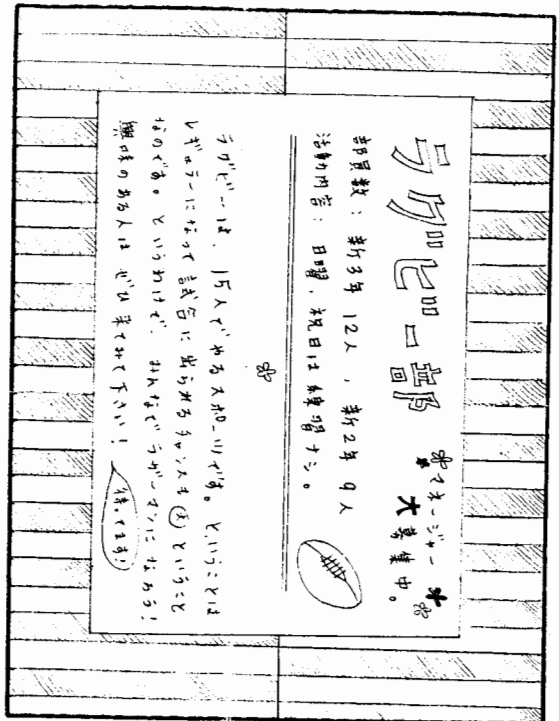 ラグビー部
マネージャー
大募集中。
部員数：新3年 12人、新2年 9人
活動内容：日曜、祝日は練習ナシ。
ラグビーは、15人でやるスポーツです。ということは
レギュラーになって試合に出られるチャンスも大ということ
なのです。というわけで、みんなでラガーマンになろう！
興味のある人は ぜひ来てみて下さい！
待ってます！